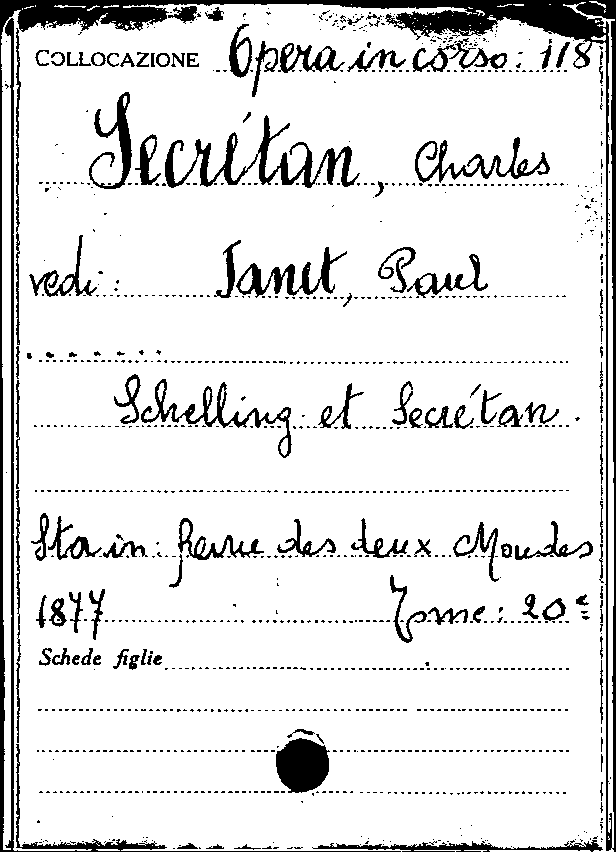 COLLOCAZIONE Opera in corso: 118
Secrétan, Charles
vedi: Janet, Paul
.......
Schelling et Secrétan.
Sta in: Revue des deux Mondes
1877 Tome: 20e
Schede figlie